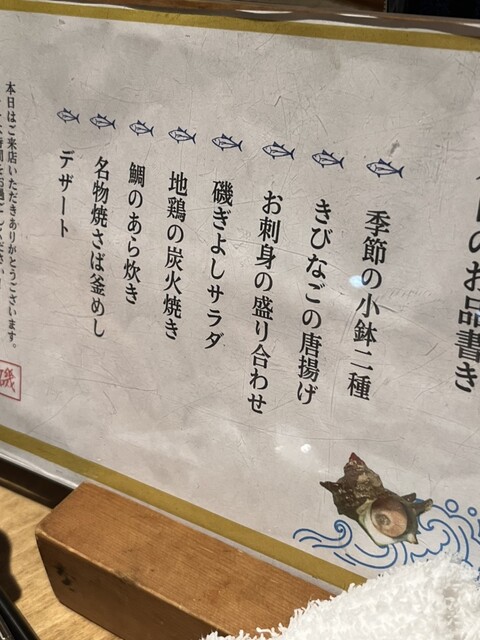 のお品書き
季節の小鉢二種
きびなごの唐揚げ
お刺身の盛り合わせ
磯ぎよしサラダ
地鶏の炭火焼き
鯛のあら炊き
名物焼さば釜めし
デザート
本日はご来店いただきありがとうございます。